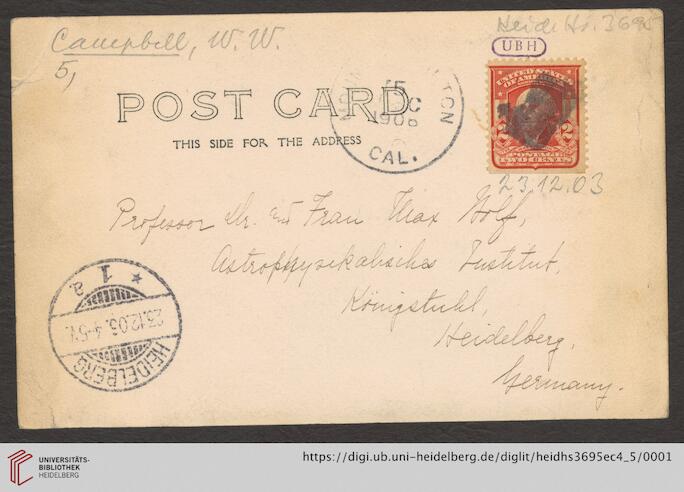 Campbell, W. W.
5,
Heid. Hs. 3695
UBH
POST CARD
THIS SIDE FOR THE ADDRESS
HAMILTON
15
1903
CAL.
UNITED STATES
OF AMERICA
2 2
POSTAGE
TWO CENTS
23.12.03
Professor Dr. und Frau Max Wolf,
Astrophysikalisches Institut,
Königstuhl,
Heidelberg,
Germany.
* 1 a.
23.12.03. 4-5V.
HEIDELBERG
UNIVERSITÄTS-
BIBLIOTHEK
HEIDELBERG
https://digi.ub.uni-heidelberg.de/diglit/heidhs3695ec4_5/0001